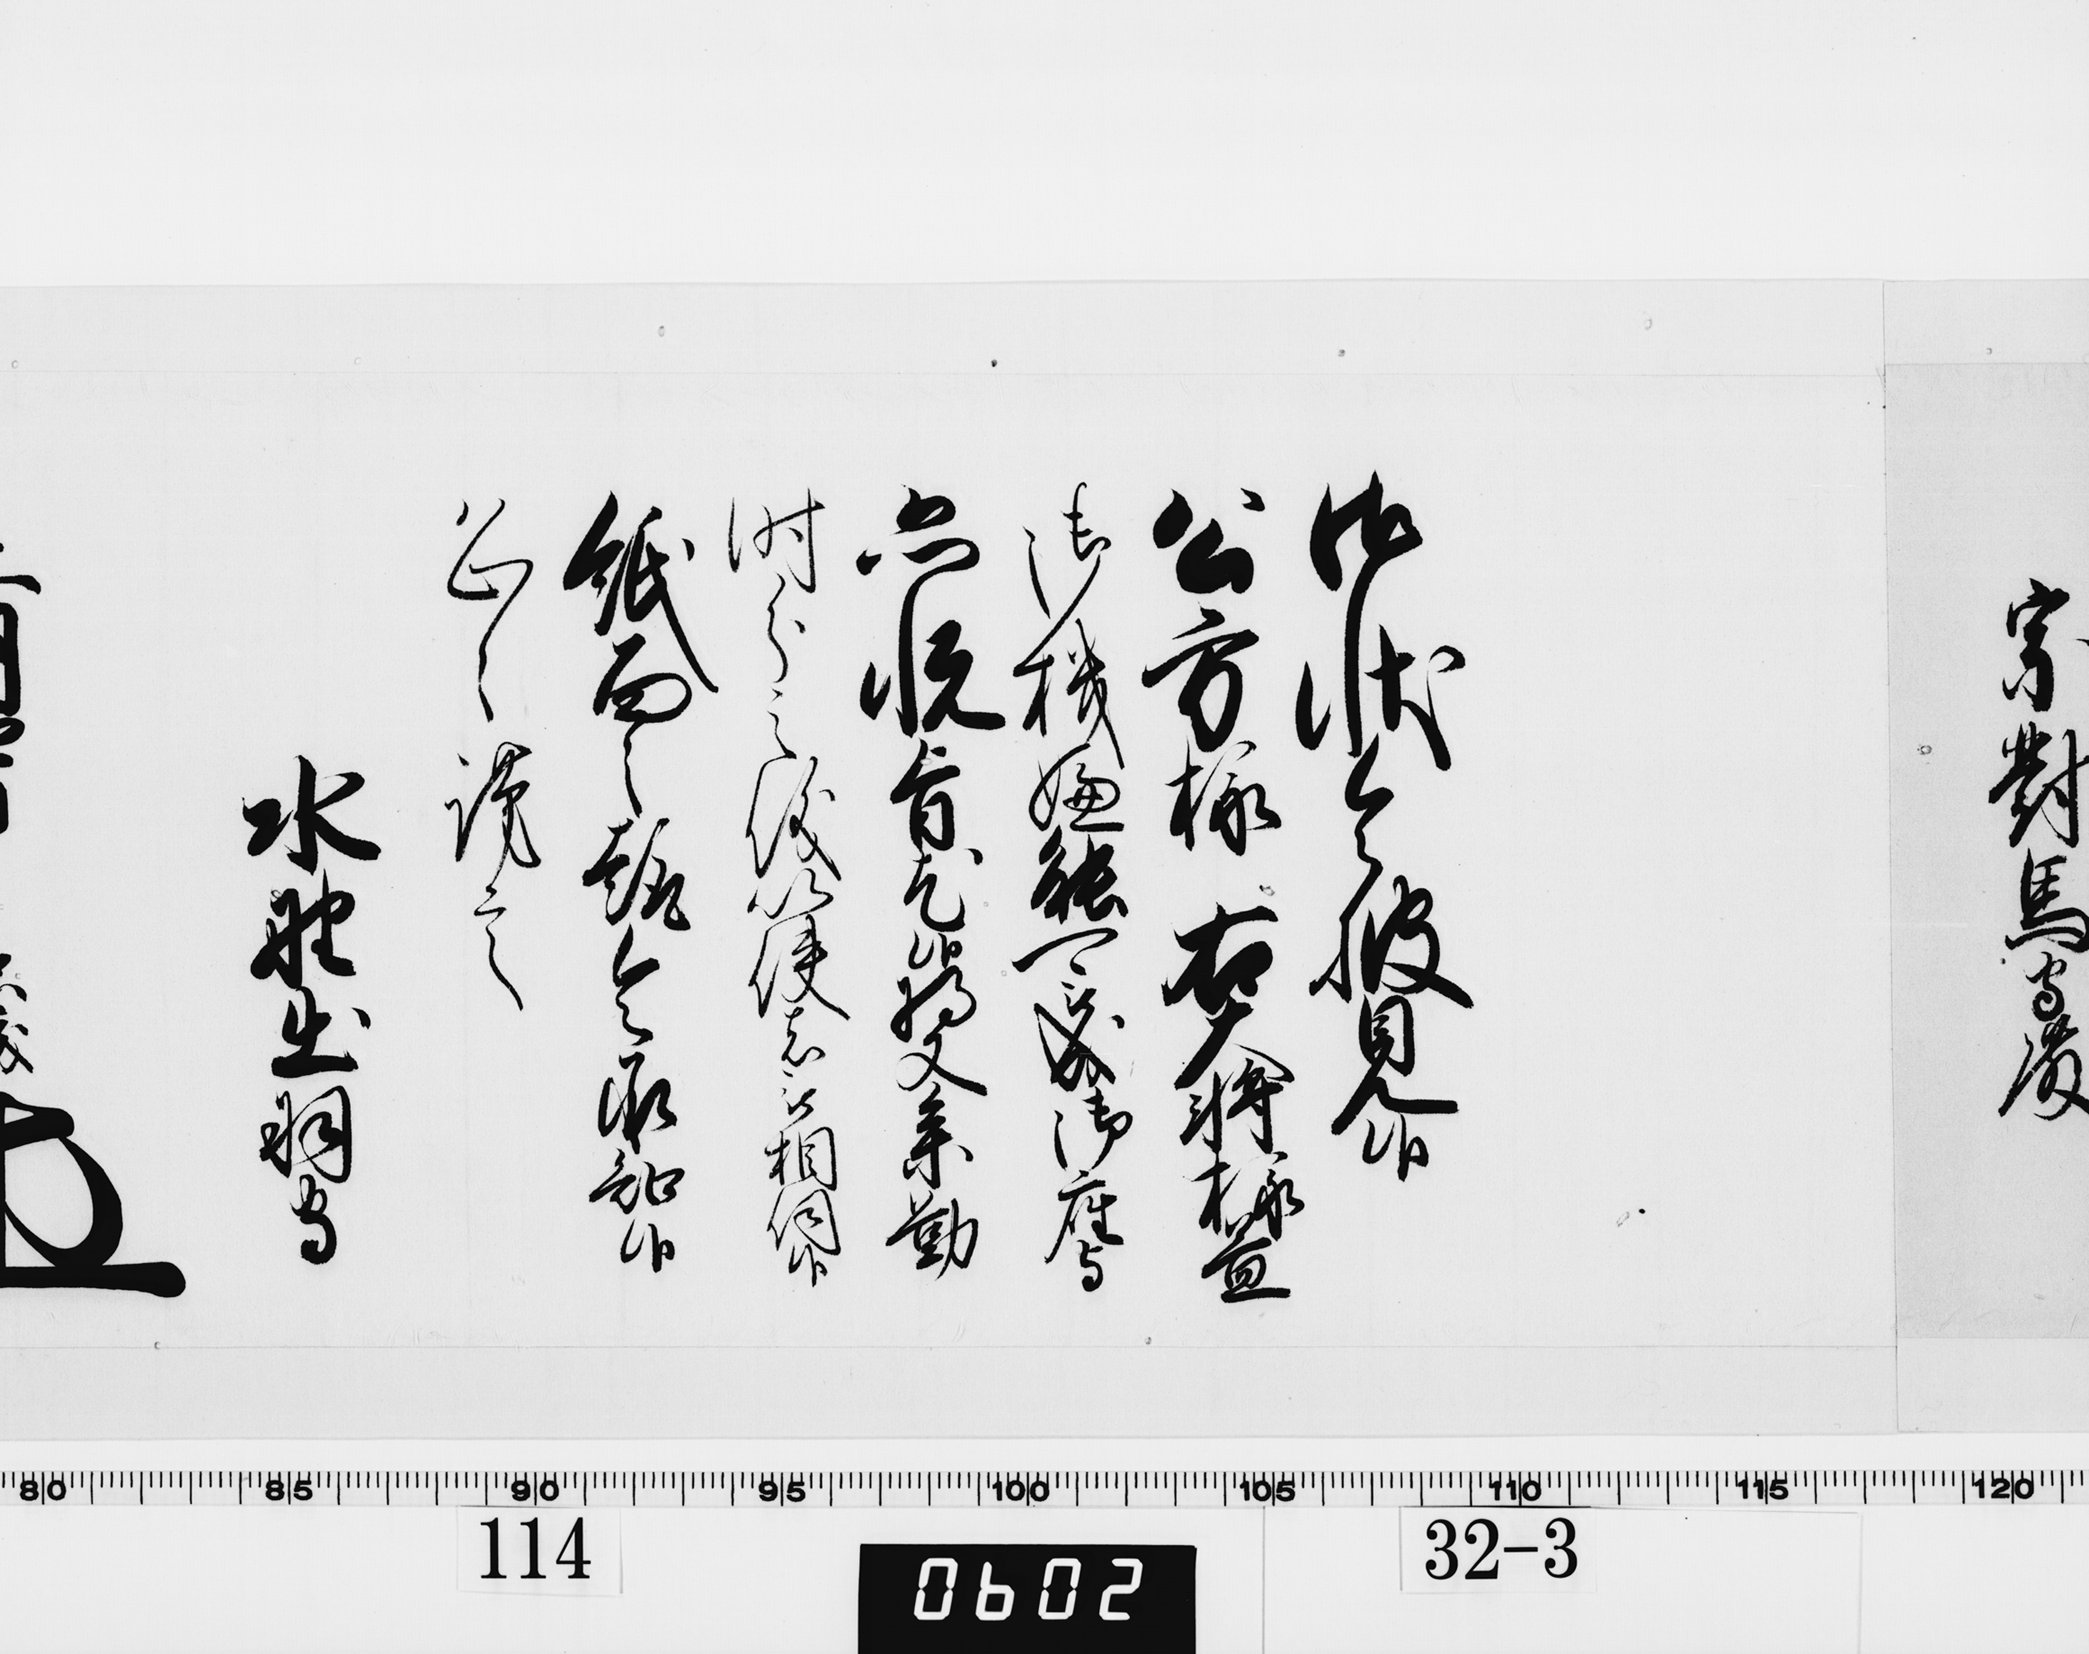 宗對馬守殿
御状令披見候
公方様右大将様益
御機嫌能被成御座
恐悦旨尤候将又参勤
時分之儀以使者被相伺候
紙面之趣令承知候
恐々謹言
水野出羽守
80 85 90 95 100 105 110 115 120
114
0602
32-3